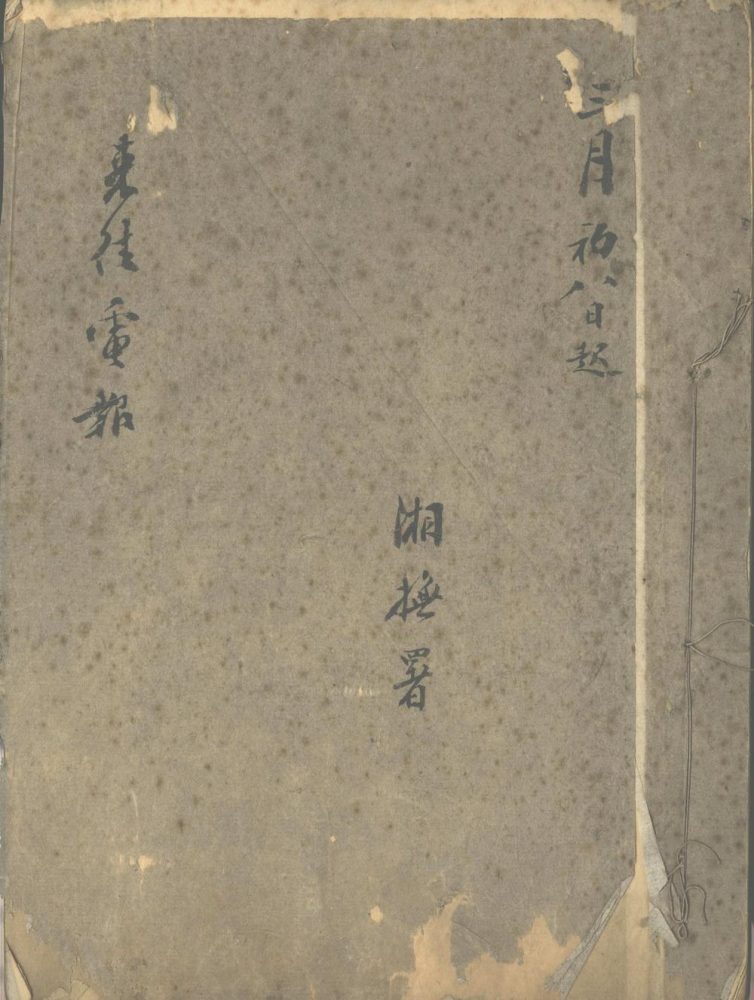 三月初八日起
湘撫署
来往電報